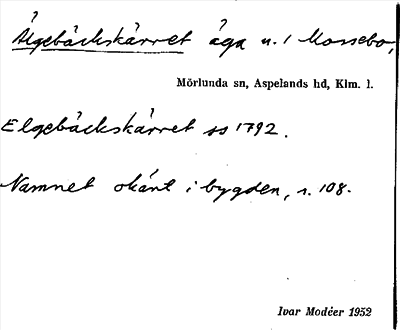 Älgebäckskärret äga u. / Mossebo,
Mörlunda sn, Aspelands hd, Klm. l.
Elgebäckskärret ss 1792.
Namnet okänt i bygden, s. 108.
Ivar Modéer 1952